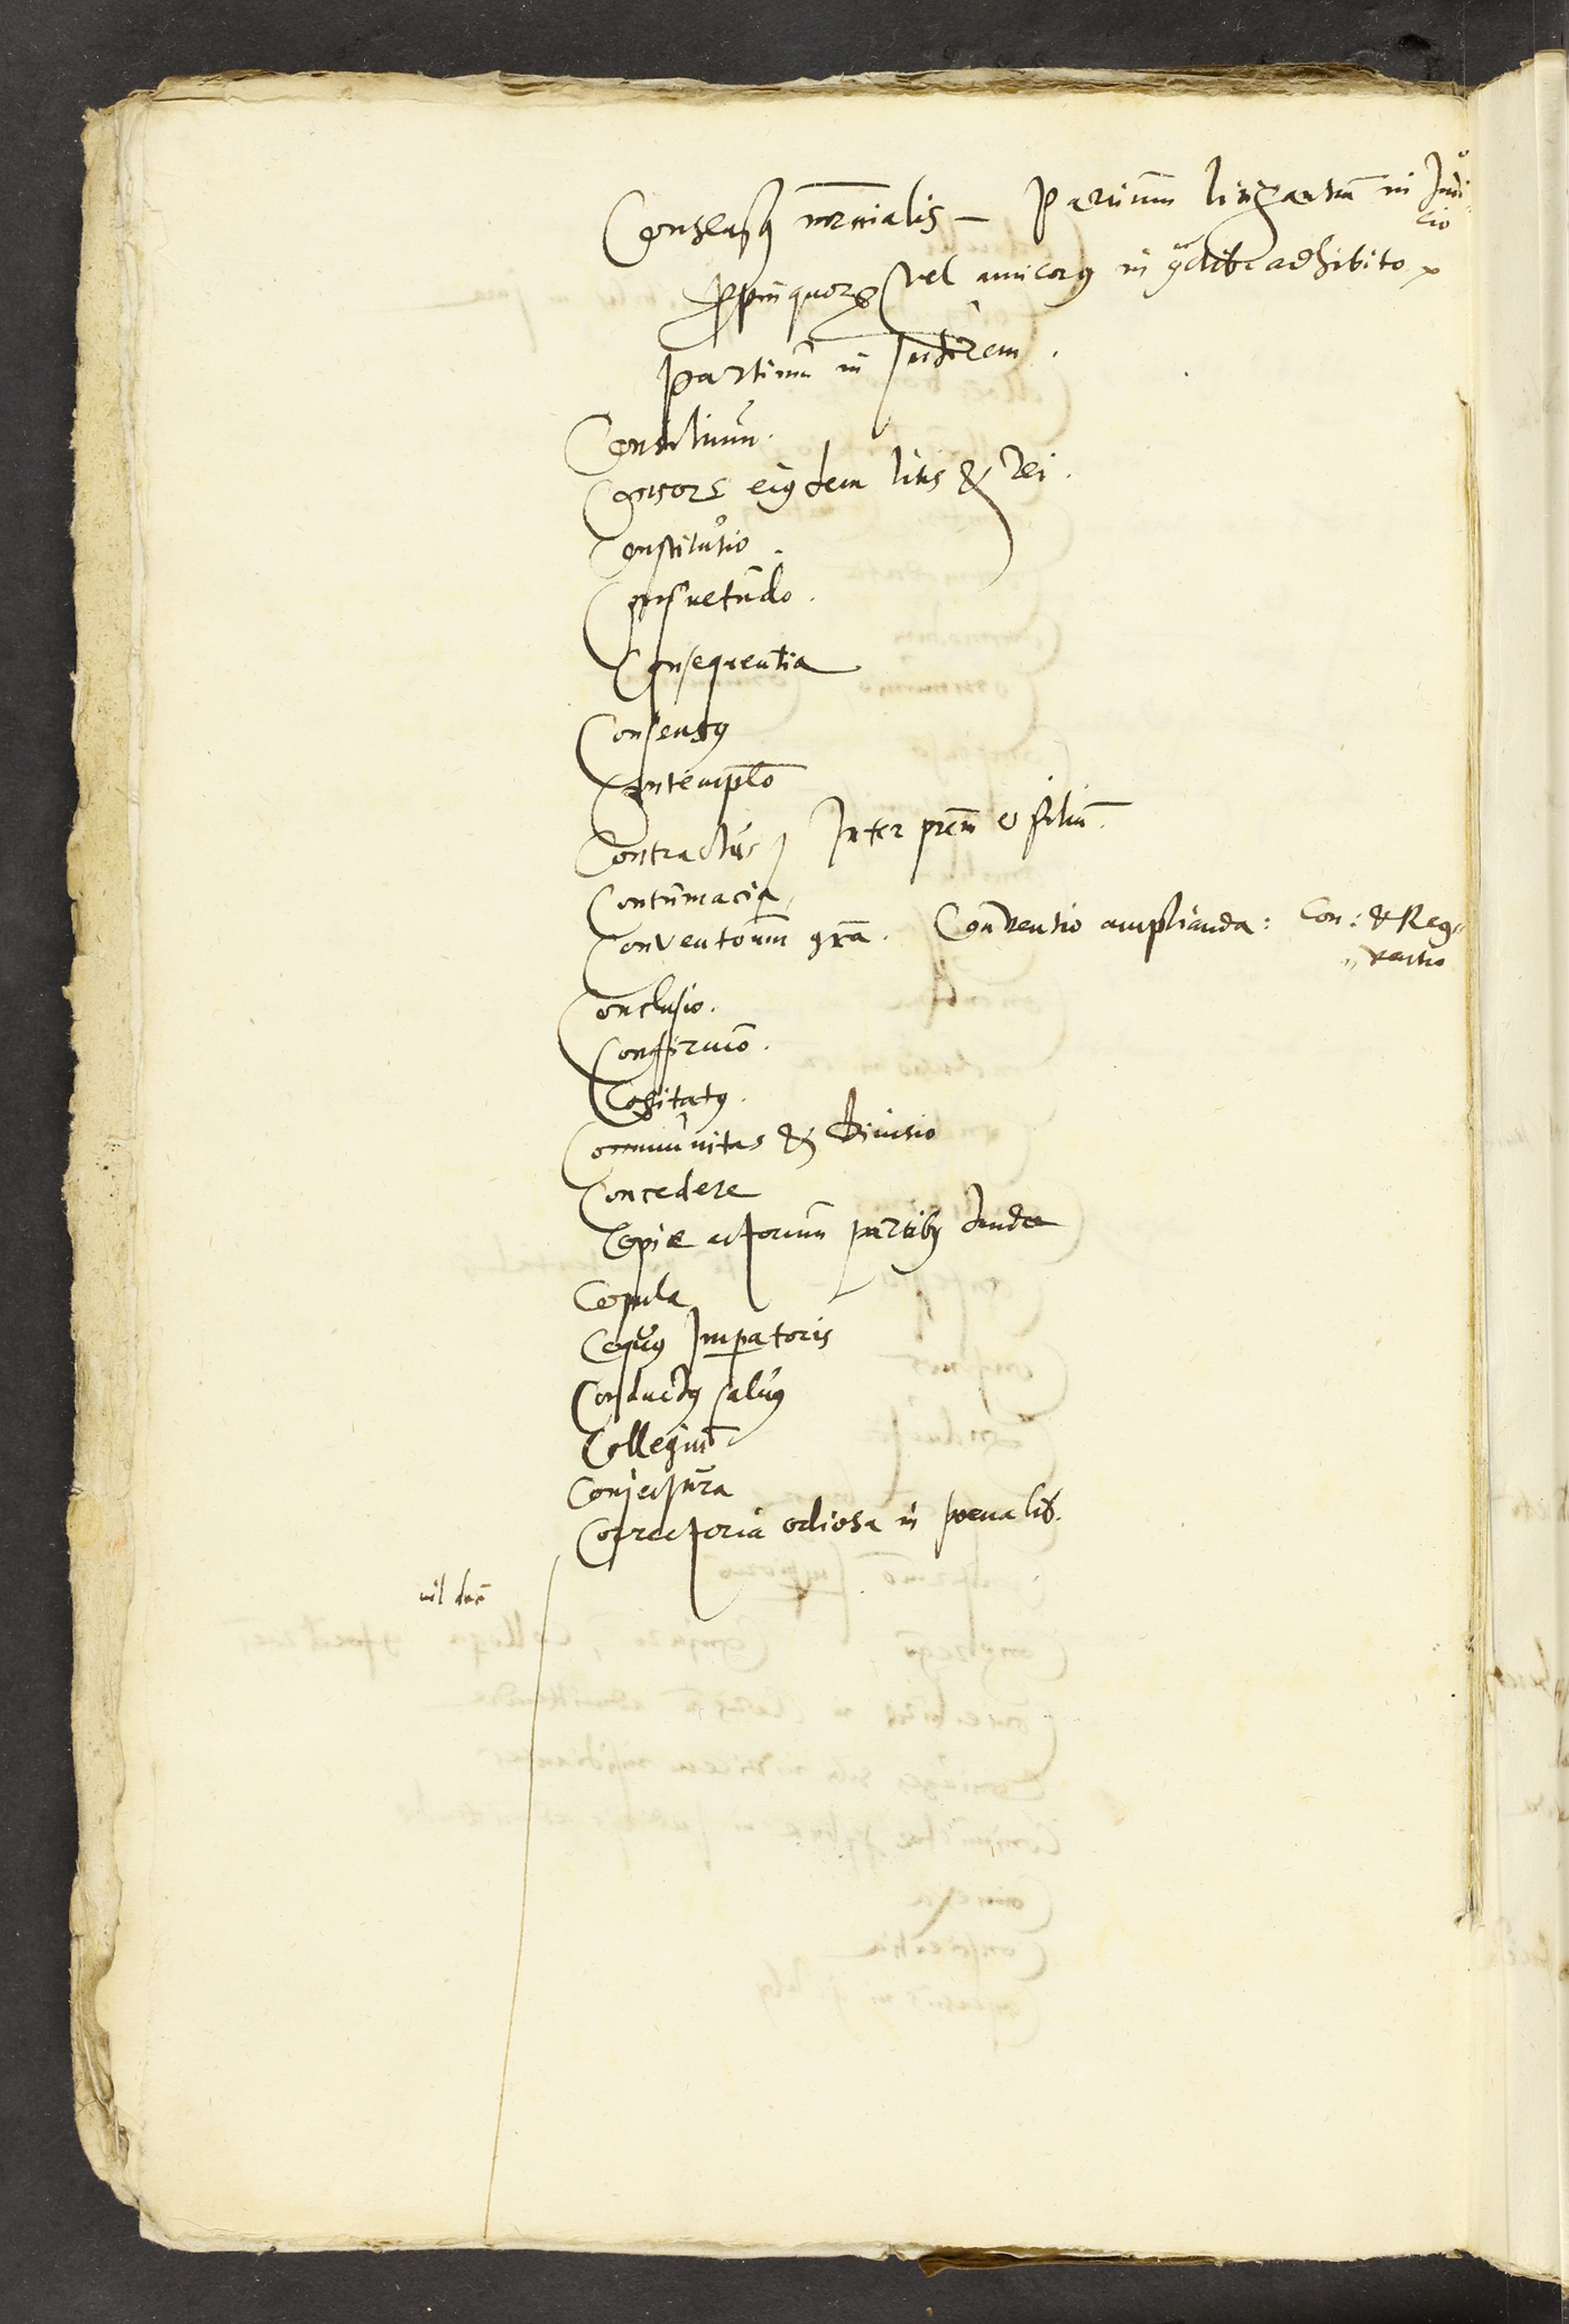 Consensus mr̄nialis – Partium litigantium in Judi
cio
propinquorum vel amicorum in gdib: adhibitor
partium in Judicem.
Consilium.
Consors eiusdem litis & rei.
Constitutio.
Consuetudo.
Consequentia
Consensus
Contemplō
Contractus Inter prēm & filiū.
Contumacia,
Conventionum grā. Conventio amplianda: Con: & Reg〃
〃ventio
Conclusio.
Confirmō.
Cogitatus.
Communitas & divisio
Concedere
Copiæ actorum partibus dandæ
Copula
Equus Impatoris
Conductus salvus
Collegium
Conjectura
Correctoria odiosa in poenalib.